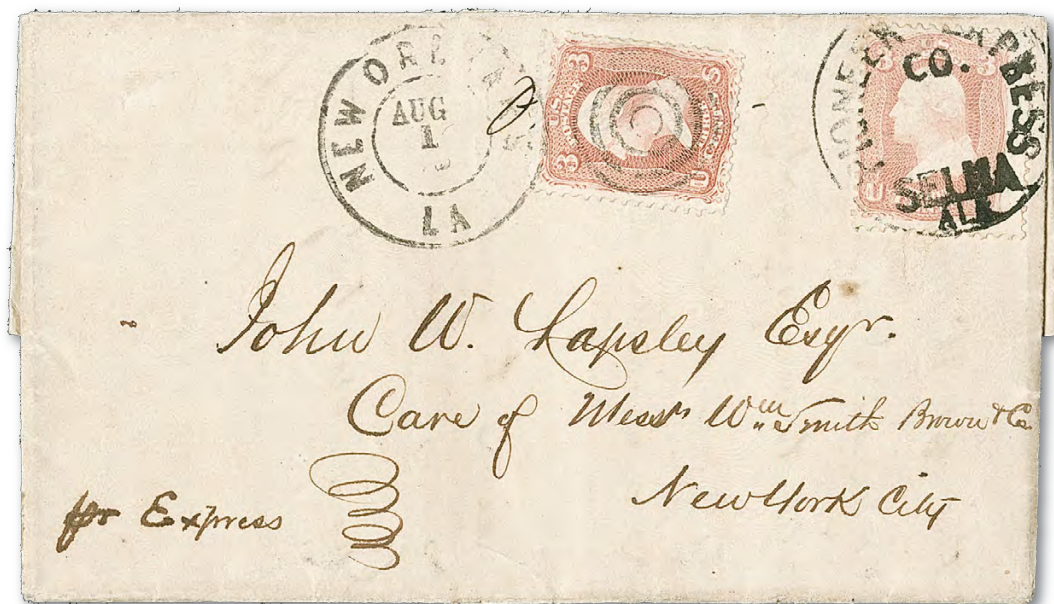 NEW ORLEANS
AUG
LA
PIONEER EXPRESS
CO.
SELMA
ALA
John W. Lapsley Esqr.
Care of Messrs Wm Smith Brown & Co.
New York City
pr Express